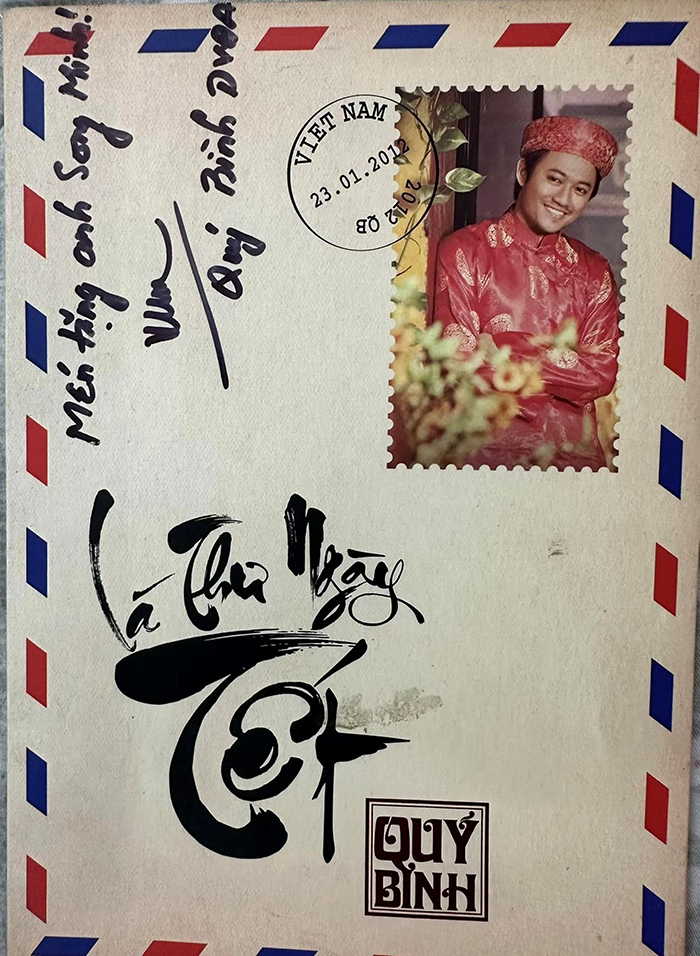 Mến tặng anh Song Minh!
Quý Bình
VIET NAM
23.01.2012
2012 QB
Lá Thư Ngày
Tết
QUÝ
BÌNH